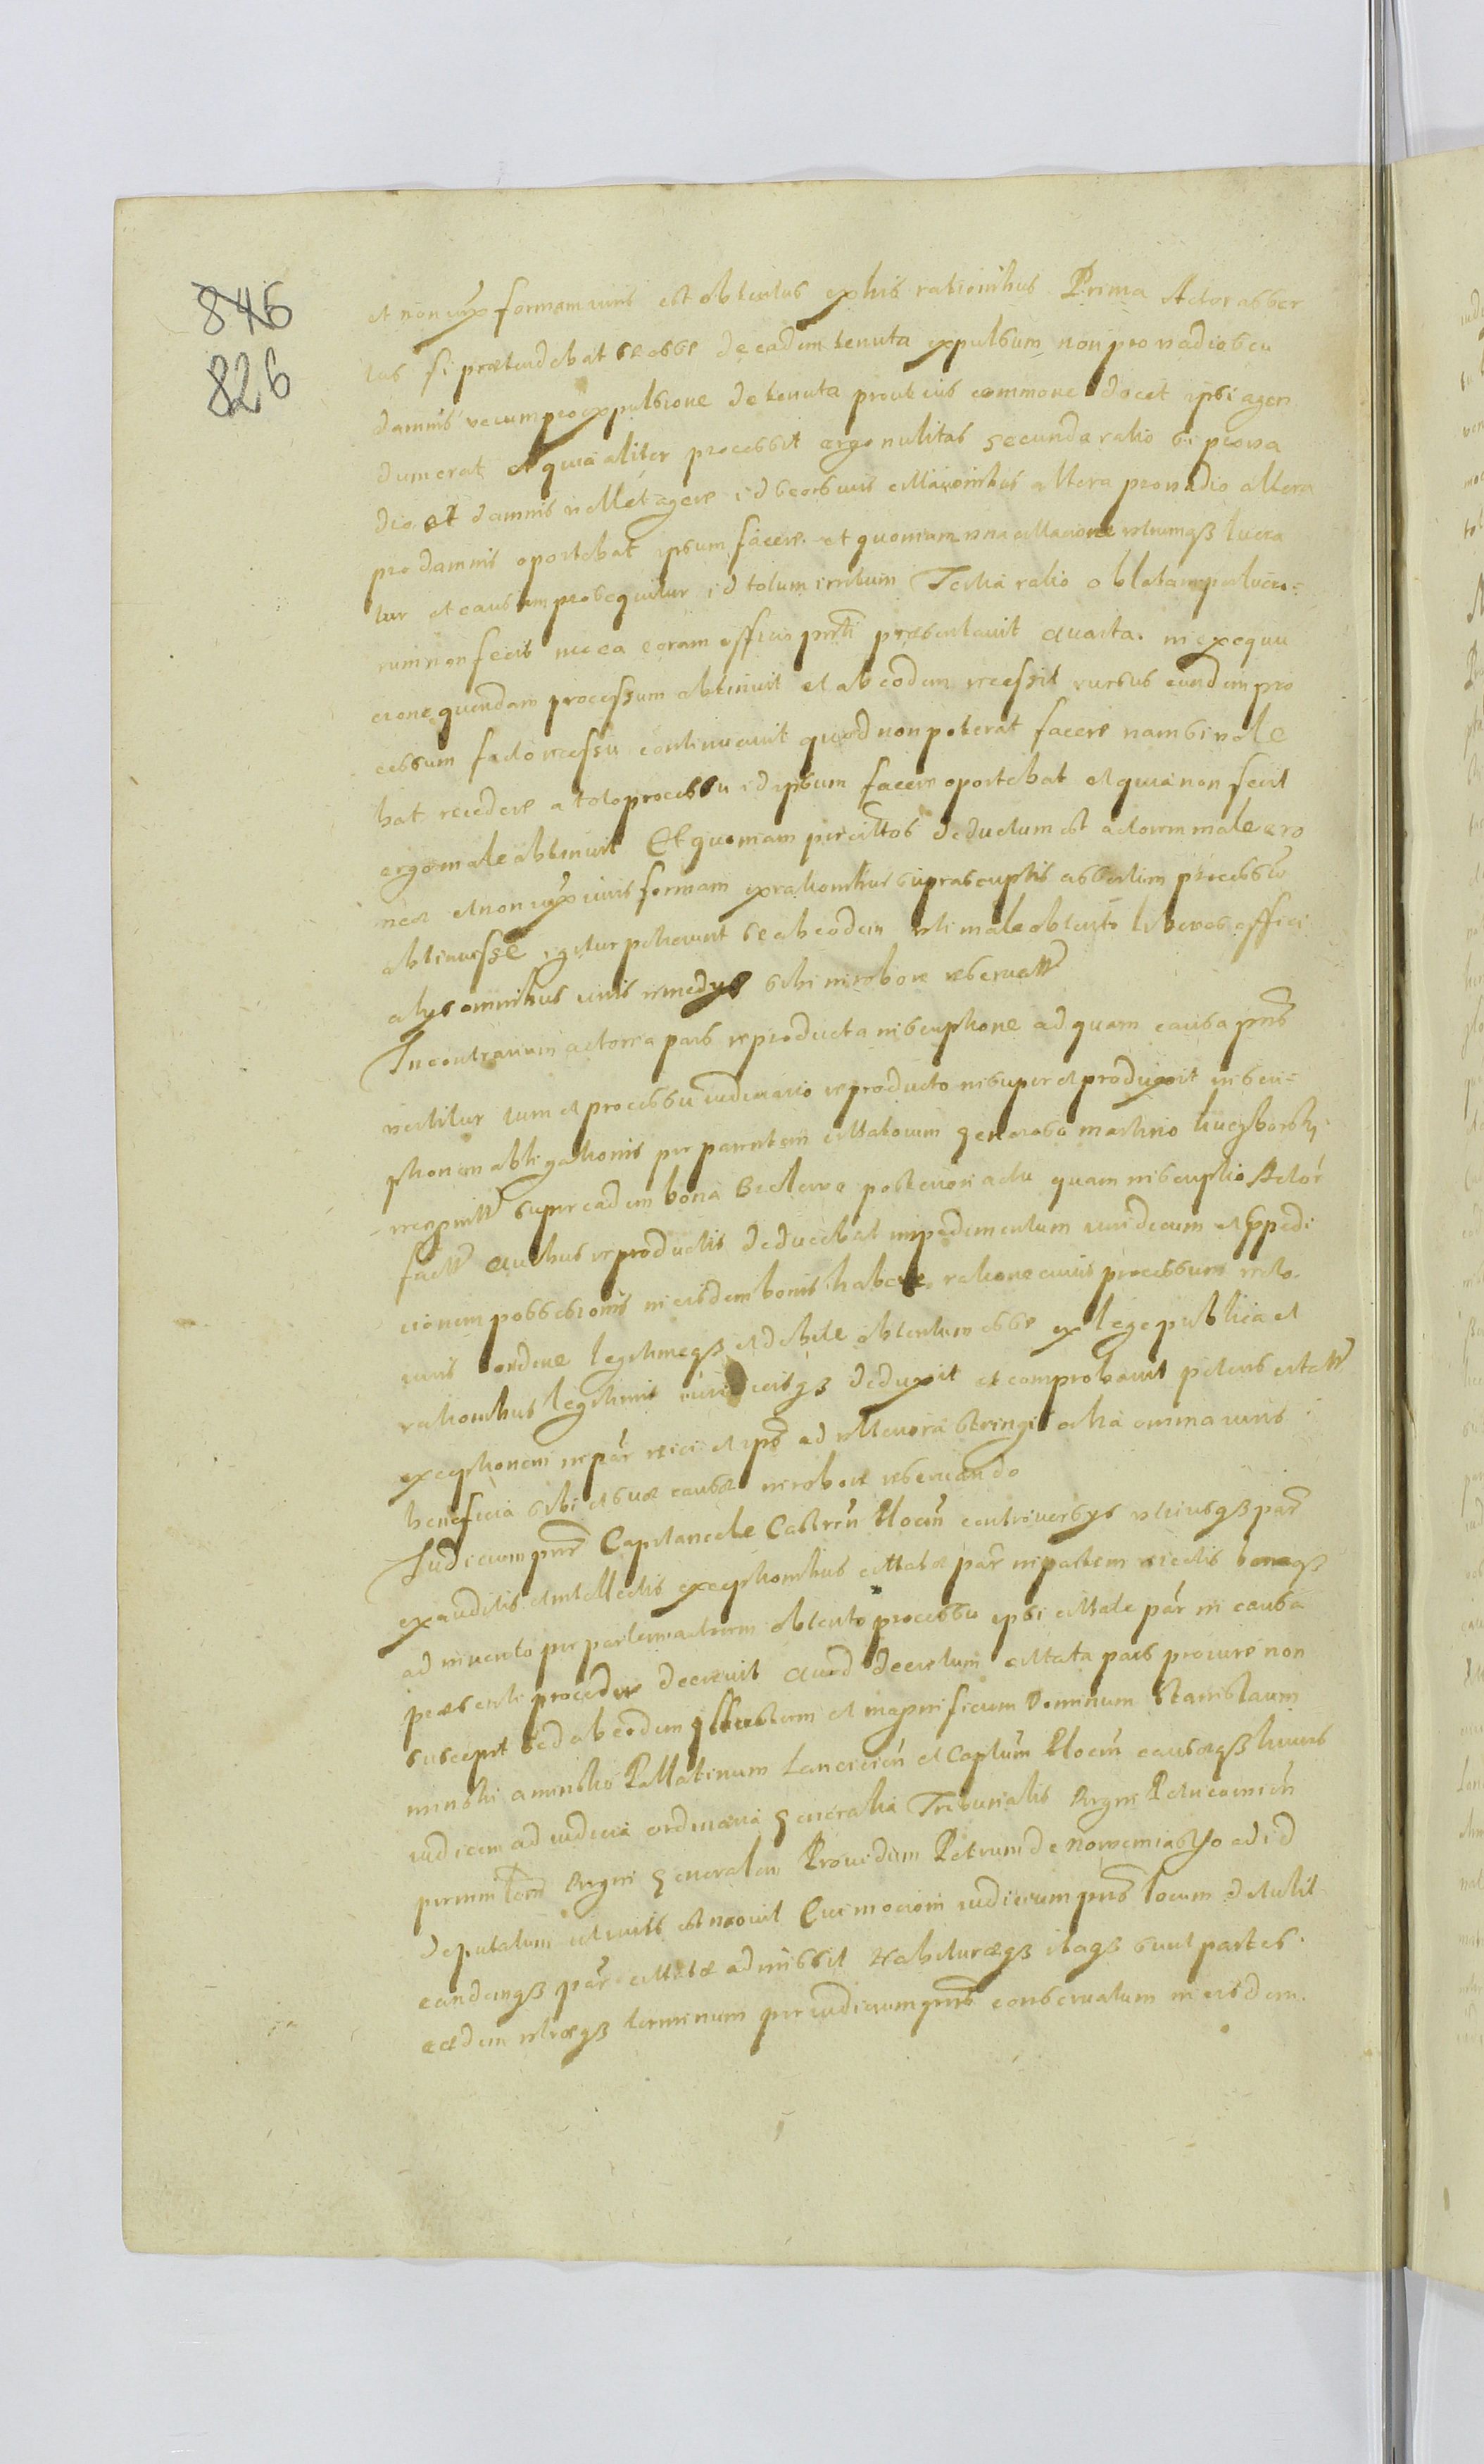 846
826
et non iuxta formam iuris est obtentus ex his rationibus Prima Actor asser
tus si prætendebat se esse de eadem tenuta expulsum non pro vadio seu
damnis verum pro expulsione de tenuta prout ius commune docet ipsi agen
dum erat et quia aliter processit ergo nulitas secunda ratio si pro va
dio et damnis vellet agere id seorsivis citationibus altera pro vadio altera
pro damnis oportebat ipsum facere et quoniam una citacione utrumqß lucra
tur et causam prosequitur id totum irritum Tertia ratio oblatam
non fecit nec ea coram officio pnti præsentavit Quarta in exequu
cione quendam processum obtinuit et ab eodem recessit rursus eundem pro
cessum facto recessu continuavit quod non poterat facere nam si vole
bat recedere a toto processu id ipsum facere oportebat et quia non fecit
ergo male obtinuit Et quoniam per cittos deductum est actorem male erro
nee et non iuxta iuris formam ex rationibus suprascriptis assertum processum
obtinuisse igitur petierunt se ab eodem uti male obtento liberos effici
alys omnibus iuris remedys sibi in robore reservatis
In contrarium actorea pars reproducta inscriptione ad quam causa pns
vertitur tum et processu iudiciario reproducto insuper et produxit inscri=
ptionem obligationis per parentem citatorum generoso martino
super eadem bona posteriori actu quam inscriptio Actor
fact quibus reproductis deducebat impedimentum iuridicum et expedi
cionem possessionis in eisdem bonis habere ratione cuius processum recto
iuris ordine legitimeqß et debite obtentum esse ex lege publica et
rationibus legitimis iuridicisqß deduxit et comprobavit petens citat
exceptionem in par reici et ipso ad ulteriora stringi alia omnia iuris
beneficia sibi et suæ causæ in robore reservando
Iudicium pns Capitaneale Castren Plocen controversys utriusqß par
exauditis et intellectis exceptionibus citatæ par in partem reiectis
adinvento per partem actorem obtento processu ipsi citatæ par in causa
præsenti procedere decrevit Quod decretum citata pars pro iure non
suscepit sed ab eodem Illustrem et magnificum Dominum Stanislaum
minski a minsko Pallatinum Lancicien et Captum Plocen causæqß huius
iudicem ad iudicia ordinaria generalia Tribunalis Regni Petricovien
per ministem Regni generalem Providum Petrum de ad id
deputatum et iuris est movit Cui mocioni iudicium pns locum detulit
eandemqß par citatæ admissit Habituræqß itaqß sunt partes
eædem utræqß terminum per iudicium pns conservatum in eisdem.